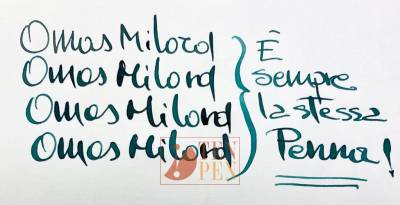 Omas Milord
Omas Milord
Omas Milord
Omas Milord
È
sempre
la stessa
Penna!
TEN
PEN